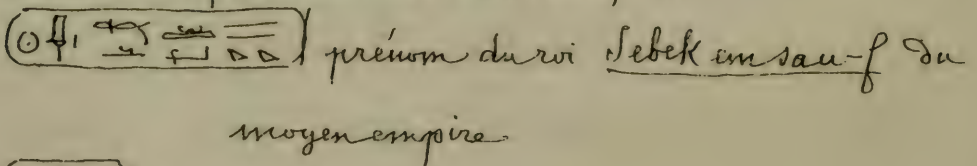 prénom du roi Sebek em sau-f du
moyen empire